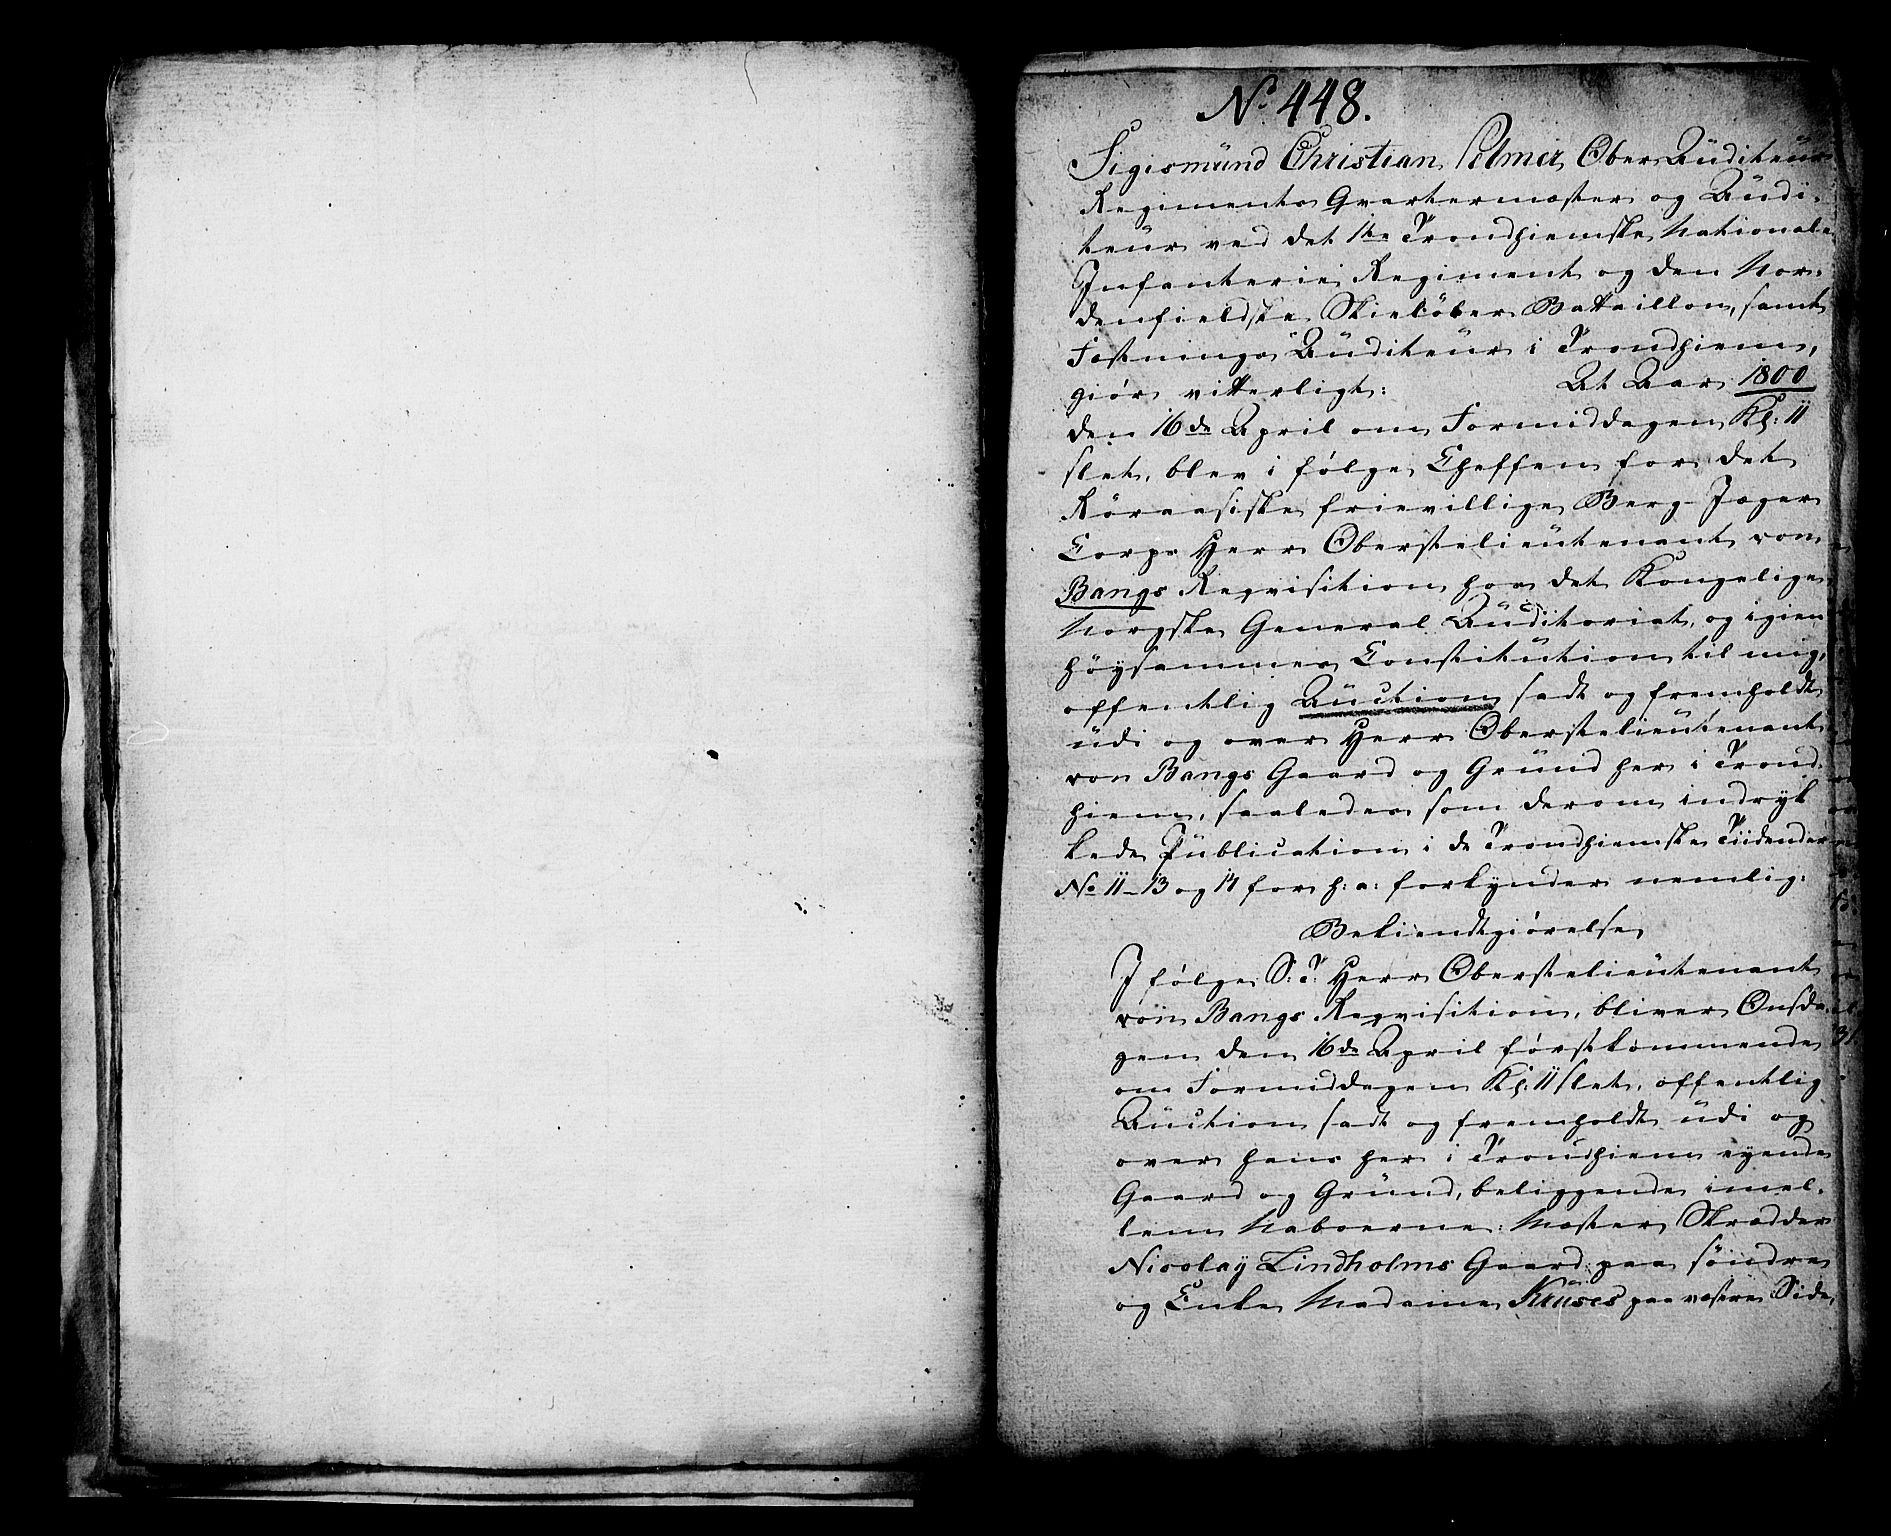 No 448.
Sigismünd Christian Pelmer Ober Auditeur
Regiments Qvartermester og Audi-
teur ved det 1te Trondhiemske Nationale
Infanterie Regiment og den Nor-
denfieldske Skielöber Battaillon, samt
Festnings Auditeur i Trondhiem,
giör vitterligt: At Aar 1800
den 16de April om Formiddagen Kl: 11
slet, blev i følge Cheffen for det
Röraasiske frievillige Berg-Jæger
Corps Herr Oberstelieutenant von
Bangs Reqvisition hos det Kongelige
Norgske General Auditoriat, og igien
höysammes Constitution til mig,
offentlig Auction sadt og fremholdt
udi og over Herr Oberstelieutenant
von Bangs Gaard og Grund her i Trond-
hiem, saaledes som derom indryk-
kede Publication i de Trondhiemske Tiidender
No 11-13 og 14 for h: a: forkynder nemlig:
Bekiendtgiörelse
I følge S: T: Herr Oberstelieutenant
von Bangs Reqvisition, bliver Onsda-
gen den 16de April førstkommende
om Formiddagen Kl: 11 slet, offentlig
Auction sadt og fremholdt udi og
over hans her i Trondhiem eyende
Gaard og Grund, beliggende imel-
lem Naboerne: Mester Skrædder
Nicolay Lindholms Gaard paa söndre
og Enke Madame Kruses paa vestre Side,